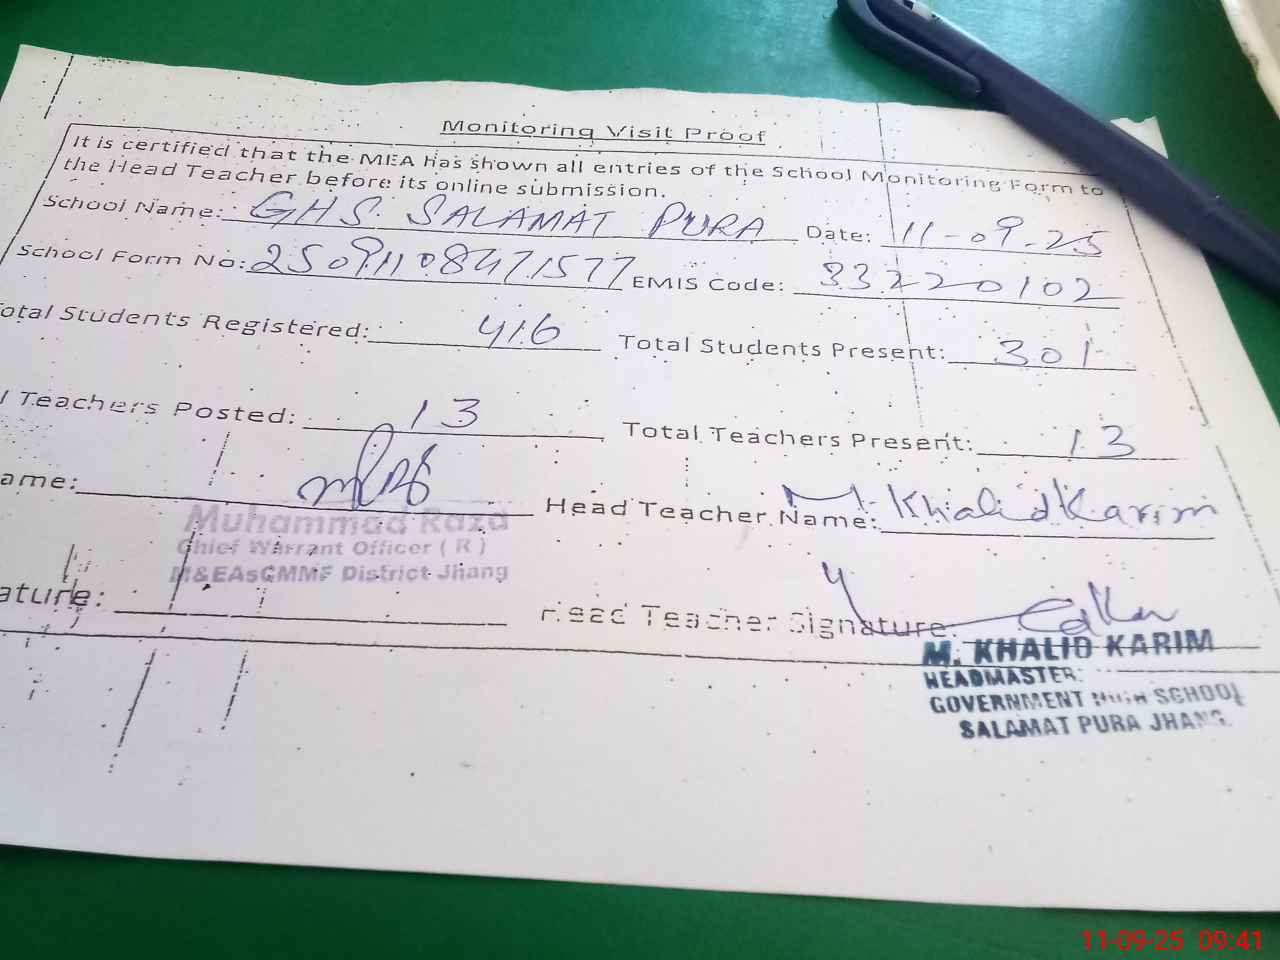 Monitoring Visit Proof
It is certified that the MEA has shown all entries of the School Monitoring Form to
the Head Teacher before its online submission.
School Name: GHS SALAMAT PURA Date: 11-09-25
School Form No: EMIS Code: 33220102
otal Students Registered: 416 Total Students Present: 301
l Teachers Posted: 13 Total Teachers Present: 13
ame: Head Teacher Name: M. Khalid Karim
Muhammad Raza
Chief Warrant Officer ( R )
M&EAsCMMF District Jhang
ature: Head Teacher Signature:
M. KHALID KARIM
HEADMASTER:
GOVERNMENT HIGH SCHOOL
SALAMAT PURA JHANG.
11-09-25 09:41